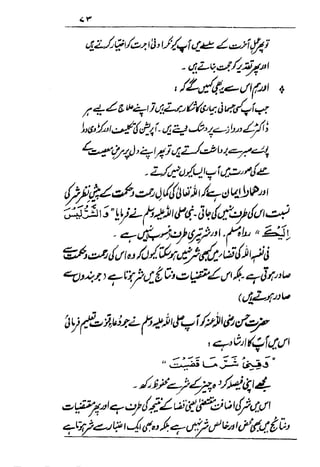 ۷۳
تو پھر عملِ آخرت کے سلسلے میں آپ کیونکر ادنیٰ اجرت کو اختیار کرتے ہیں
اور پھر تقدیر کو حجت بناتے ہیں۔
اور ہم اس سے یہ بھی کہیں گے کہ:
جب آپ کسی جسمانی بیماری کا شکار ہوتے ہیں تو اپنے علاج کے لیے ہر
ڈاکٹر کے دروازے پر دستک دیتے ہیں۔ آپریشن کی تکلیف اور کڑوی دوا
پورے صبر سے برداشت کرتے ہیں تو پھر اپنے دل پر مرضِ معصیت کے
حملے کی صورت میں آپ ایسا کیوں نہیں کرتے۔
اور ہمارا ایمان ہے کہ اللہ تعالیٰ کی کمال رحمت و حکمت کے پیش نظر شر کی
نسبت اس کی طرف نہیں کی جاتی۔ نبی صلی اللہ علیہ وسلم نے فرمایا "وَ الشَّرُّ لَیْسَ
اِلَیْکَ" رواہ مسلم۔ اور شر تیری طرف منسوب نہیں ہے۔
فی نفسہٖ اللہ کی قضاء میں کبھی شر نہیں ہو سکتا کیوں کہ وہ اس کی رحمت و حکمت سے
صادر ہوتی ہے۔ بلکہ اس کے مقتضیات و نتائج میں شر ہوتا ہے (جو بندوں سے
صادر ہوتے ہیں)
حضرت حسن رضی اللہ عنہ کو آپ صلی اللہ علیہ وسلم نے جو دعاءِ قنوت تعلیم فرمائی
اس میں آپ کا ارشاد ہے:
"وَ قِنِیْ شَرَّ مَا قَضَیْتَ"
مجھے اپنی فیصلہ کردہ چیز کے شر سے محفوظ رکھ۔
اس میں شر کی اضافت مقتضیٰ یعنی قضا کے نتیجہ کی طرف ہے اور پھر مقتضیات
و نتائج میں بھی محض اور خالص شر نہیں ہے بلکہ وہ بھی ایک اعتبار سے شر ہوتا ہے